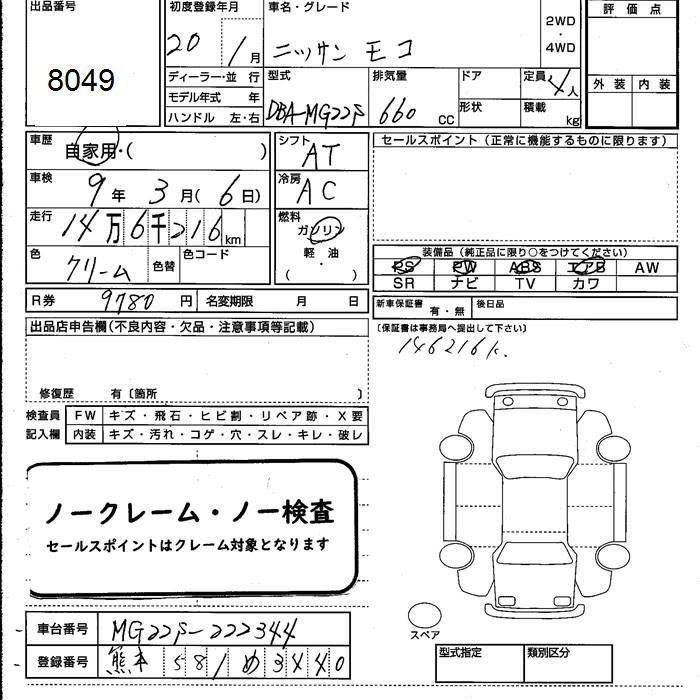 出品番号
8049
初度登録年月
20 1月
車名・グレード
ニッサン モコ
2WD
・
4WD
評価点
外装 内装
ディーラー・並 行
モデル年式 年
ハンドル 左・右
型式
DBA-MG22S
排気量
660 CC
ドア
形状
定員 4人
積載 kg
車歴 自家用・( )
車検 9年 3月( 6日)
走行 14万6千216km
色 クリーム 色替 色コード
シフト
AT
冷房
AC
燃料
ガソリン
軽・油
( )
セールスポイント(正常に機能するものに限ります)
装備品(純正品に限り○をつけてください)
PS PW ABS エアB AW
SR ナビ TV カワ
R券 9780円 名変期限 月 日
新車保証書 有・無 後日品
(保証書は事務局へ提出して下さい)
146216k.
出品店申告欄(不良内容・欠品・注意事項等記載)
修復歴 有〔箇所 〕
検査員 FW キズ・飛石・ヒビ割・リペア跡・X要
記入欄 内装 キズ・汚れ・コゲ・穴・スレ・キレ・破レ
ノークレーム・ノー検査
セールスポイントはクレーム対象となります
スペア
車台番号 MG22S-222344
登録番号 熊本 581 め 3440
型式指定 類別区分